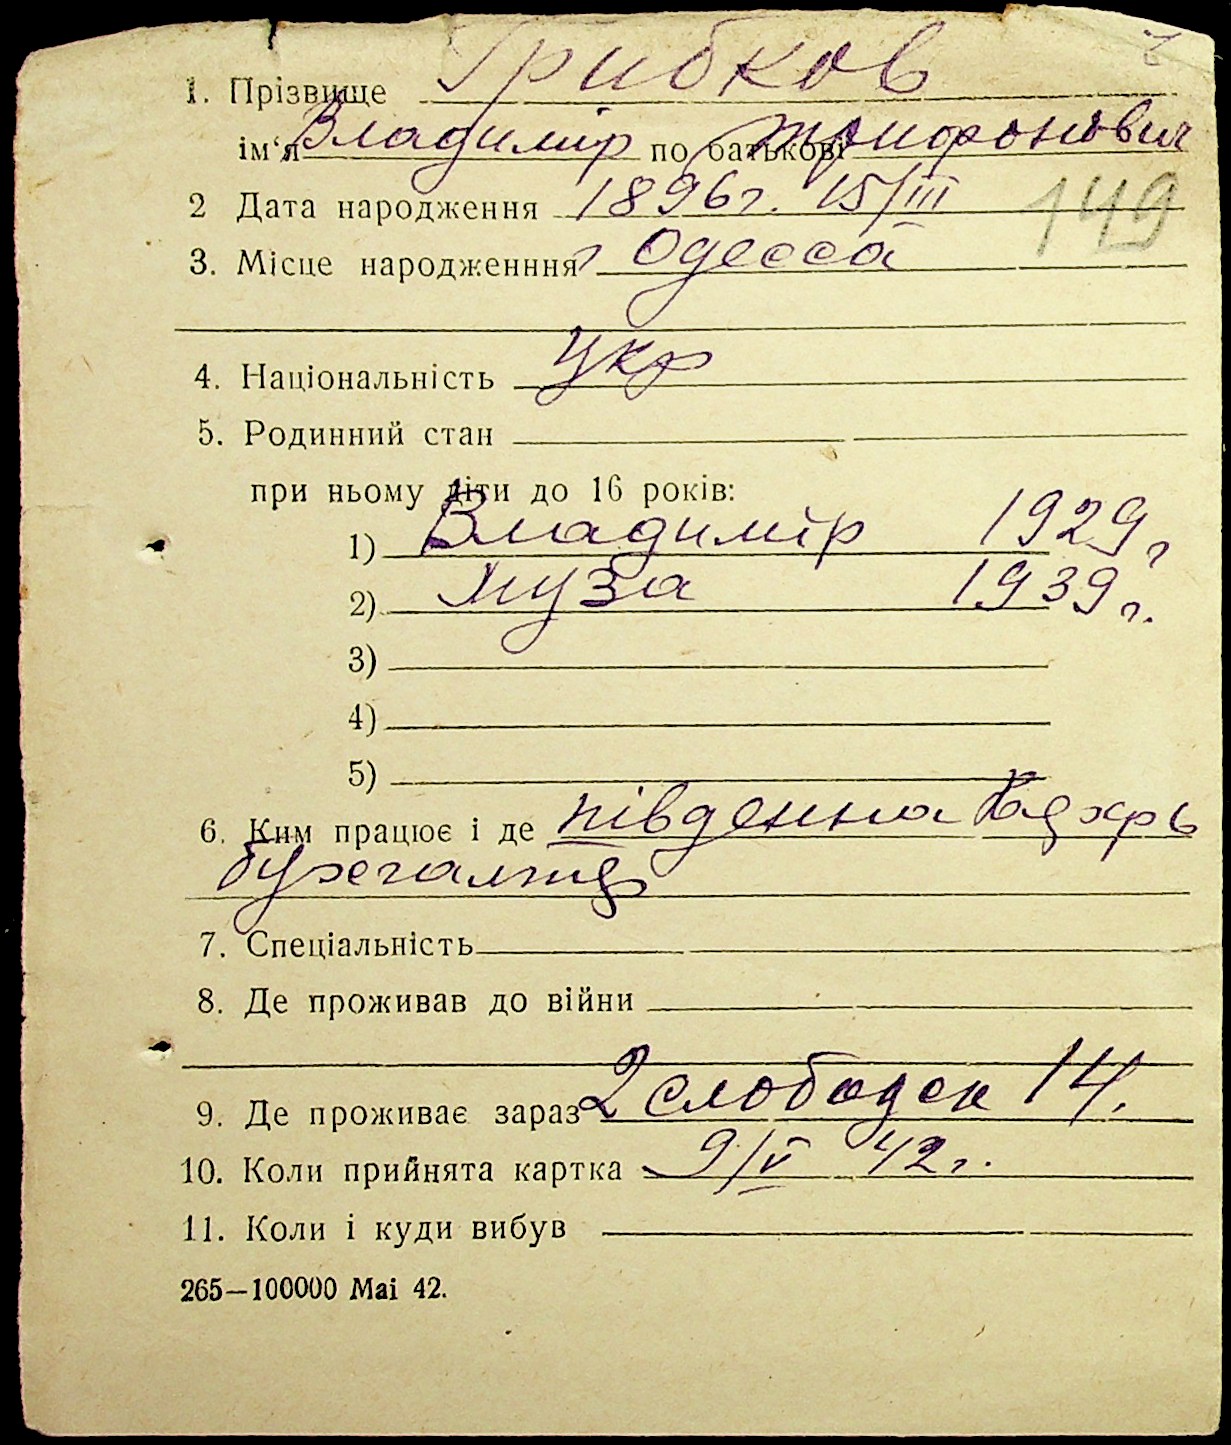 1. Прізвище Грибков
ім‘я Владимір по батькові Трифонович
2 Дата народження 1896 г. 15/III
149
3. Місце народженння г Одесса
4. Національність Укр
5. Родинний стан
при ньому діти до 16 років:
1) Владимір 1929 г
2) Муза 1939 г.
3)
4)
5)
6. Ким працює і де південна
бухгалтер
7. Спеціальність
8. Де проживав до війни
9. Де проживає зараз 2 слободск 14.
10. Коли прийнята картка 9/V 42 г.
11. Коли і куди вибув
265—100000 Mai 42.